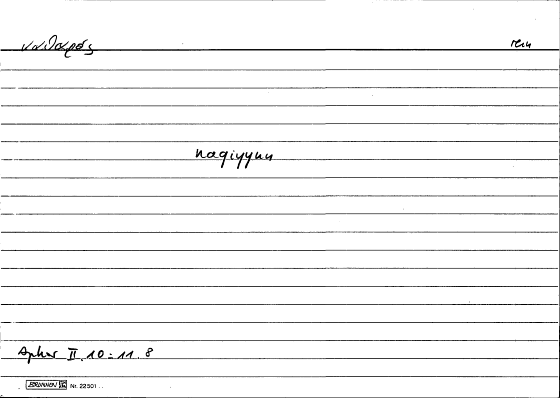 καθαρός rein
naqiyyun
Aphor II. 10 = 11. 8
BRUNNEN Nr. 22501